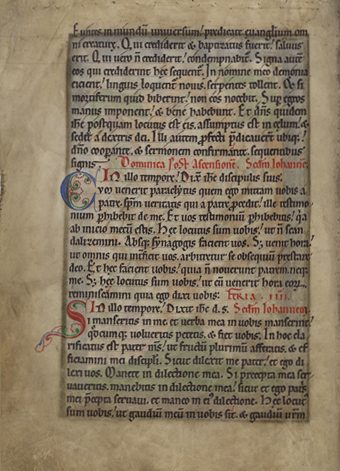 Euntes in mundũ universum, predicate euuangliũ om
ni creature. Qui crediderit & baptizatus fuerit, saluus
erit. Qui uero ñ crediderit, condempnabit. Signa autẽ
eos qui crediderint hec sequent. In nomine meo demonia
eicient, linguis loquent nouis, serpentes tollent. & si
mortiferum quid biberint, non eos nocebit. Sup egros
manus imponent, & bene habebunt. Et dñs quidem
ihc postquam locutus est eis, assumptus est in celum, &
sedet a dextris dei. Illi autem pfecti pdicauerũt ubiq;
dño cooperante, & sermonem confirmante, sequentibus
signis. Dominica post ascensionẽ. Scdm Iohanne.
In illo tempore, Dixit ihc discipulis suis,
Cum uenerit paraclytus quem ego mittam uobis a
patre, spm ueritatis qui a patre pcedit, ille testimo
nium phibebit de me. Et uos testimoniũ phibebitis, qa
ab inicio mecũ estis. Hec locutus sum uobis, ut ñ scan
dalizemini. Absq; synagogis facient uos. Sz uenit hora,
ut omnis qui interficit uos, arbitretur se obsequiũ prestare
deo. Et hec facient uobis, quia ñ nouerunt patrem neq;
me. Sz hec locutus sum uobis, ut cũ uenerit hora eorũ
reminiscamini quia ego dixi uobis. Feria. IIII.
In illo tempore, Dixit ihc d. s. Scdm Iohannem
Si manseritis in me et uerba mea in uobis manserint,
qdcumq; uolueritis petetis, & fiet uobis. In hoc cla
rificatus est pater ms, ut fructũ plurimũ afferatis, & ef
ficiamini mei discipuli. Sicut dilexit me pater, et ego di
lexi uos. Manete in dilectione mea. Si precepta mea ser
uaueritis, manebitis in dilectione mea, sicut et ego patris
mei pcepta seruaui, et maneo in ei dilectione. Hec locut
sum uobis, ut gaudiũ meũ in uobis sit, & gaudiũ urm